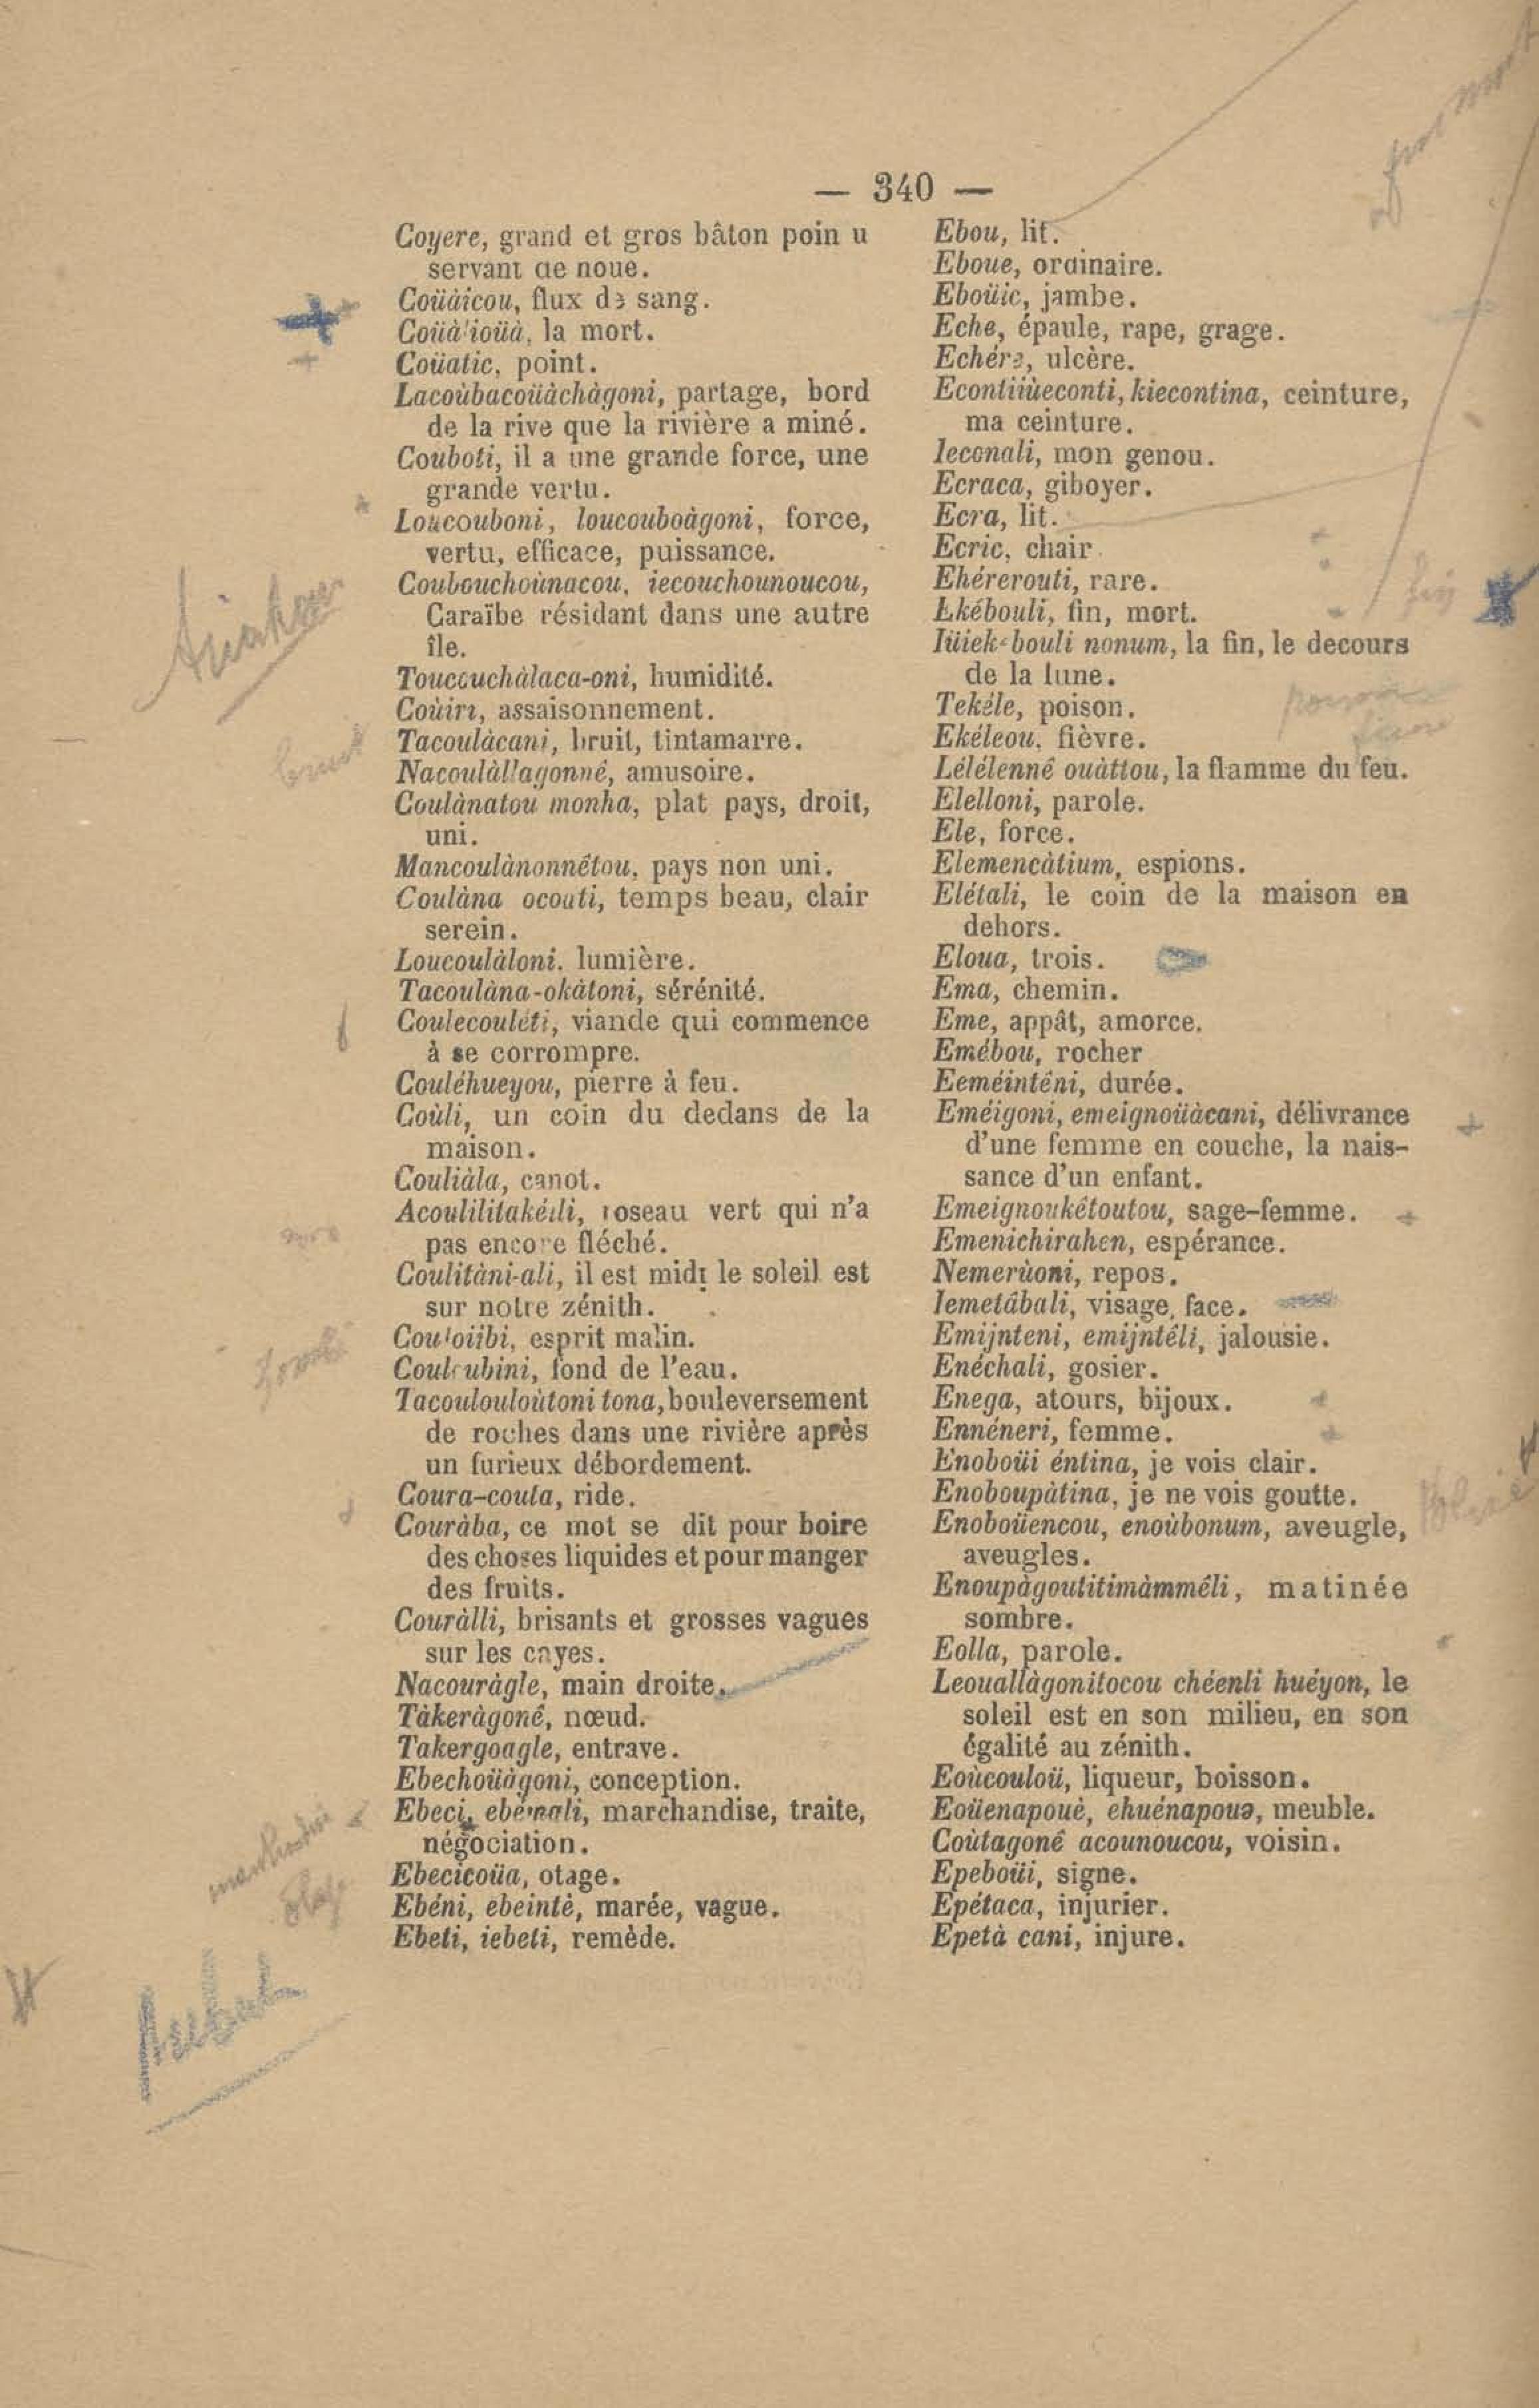 — 340 —
Coyere, grand et gros bâton poin u
servant de houe.
Coüàicou, flux de sang.
la mort.
Coüatic, point.
Lacoùbacoüàchàgoni, partage, bord
de la rive que la rivière a miné.
Couboti, il a une grande force, une
grande vertu.
Loucouboni, loucouboàgoni, force,
vertu, efficace, puissance.
Coubouchoùnacou, iecouchounoucou,
Caraïbe résidant dans une autre
île.
Touccuchàlaca-oni, humidité.
Coùiri, assaisonnement.
Tacoulàcani, bruit, tintamarre.
Nacoulàllagonné, amusoire.
Coulànatou monha, plat pays, droit,
uni.
Mancoulànonnêtou, pays non uni.
Coulàna ocouti, temps beau, clair
serein.
Loucoulàloni. lumière.
Tacoulàna-okàtoni, sérénité.
Coulecouléti, viande qui commence
à se corrompre.
Couléhueyou, pierre à feu.
Coùli, un coin du dedans de la
maison.
Couliàla, canot.
Acoulilitakéili, roseau vert qui n'a
pas encore fléché.
Coulitàni-ali, il est midi le soleil est
sur notre zénith.
esprit malin.
fond de l'eau.
Tacoulouloùtoni tona, bouleversement
de roches dans une rivière après
un furieux débordement.
Coura-couta, ride.
Couràba, ce mot se dit pour boire
des choses liquides et pour manger
des fruits.
Couràlli, brisants et grosses vagues
sur les cayes.
Nacouràgle, main droite.
Tàkeràgonê, nœud.
Takergoagle, entrave.
Ebechoüàgoni, conception.
Ebeci, marchandise, traite,
négociation.
Ebecicoüa, otage.
Ebéni, ebeintè, marée, vague.
Ebeti, iebeti, remède.
Ebou, lit.
Eboue, ordinaire.
Eboüic, jambe.
Eche, épaule, rape, grage.
Echére, ulcère.
Econtiiùeconti, kiecontina, ceinture,
ma ceinture.
Ieconali, mon genou.
Ecraca, giboyer.
Ecra, lit.
Ecric, chair.
Ehérerouti, rare.
Ekébouli, fin, mort.
Iüiekebouli nonum, la fin, le decours
de la lune.
Tekéle, poison.
Ekéleou, fièvre.
Lélélenné ouàttou, la flamme du feu.
Elelloni, parole.
Ele, force.
Elemencàtium, espions.
Elétali, le coin de la maison en
dehors.
Eloua, trois.
Ema, chemin.
Eme, appât, amorce.
Emébou, rocher
Eeméinténi, durée.
Eméigoni, emeignoüàcani, délivrance
d'une femme en couche, la nais-
sance d'un enfant.
Emeignoukêtoutou, sage-femme.
Emenichirahen, espérance.
Nemerùoni, repos.
Iemetâbali, visage, face.
Emijnteni, emijntêli, jalousie.
Enéchali, gosier.
Enega, atours, bijoux.
Ennéneri, femme.
Enoboüi éntina, je vois clair.
Enoboupàtina, je ne vois goutte.
Enoboüencou, enoùbonum, aveugle,
aveugles.
Enoupàgoutitimàmmêli, matinée
sombre.
Eolla, parole.
Leouallàgonitocou chéenli huéyon, le
soleil est en son milieu, en son
égalité au zénith.
Eoùcouloü, liqueur, boisson.
Eoüenapouè, ehuénapoue, meuble.
Coùtagoné acounoucou, voisin.
Epeboüi, signe.
Epétaca, injurier.
Epetà cani, injure.